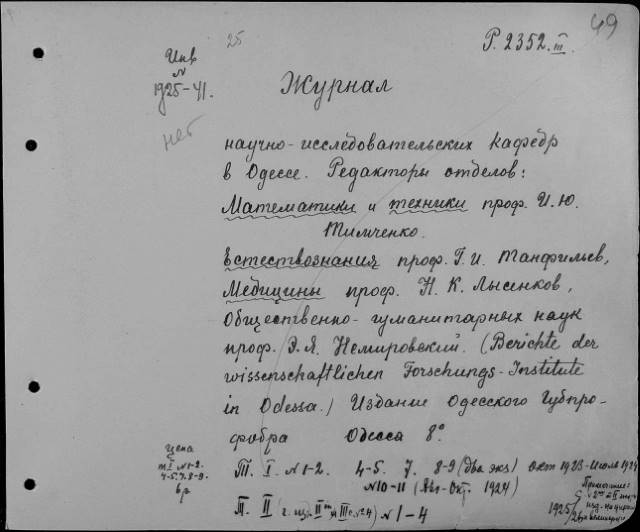 49
25
Р. 2352. III
Инв
N
1925-41.
Журнал
нет
научно-исследовательских кафедр
в Одессе. Редакторы отделов:
Математики и техники проф. И. Ю.
Тимченко.
Естествознания проф. Г. И. Танфильев,
Медицины проф. Н. К. Лысенков,
Общественно-гуманитарных наук
проф. Э. Я. Немировский. (Berichte der
wissenschaftlichen Forschungs-Institute
in Odessa.) Издание Одесского Губпро-
фобра Одесса 8°
цена
т I N 1-2.
4-5. 7. 8-9.
Т. I. N 1-2. 4-5. 7. 8-9 (два экз) окт 1923-Июль 1924
N 10-11 (Авг-Окт. 1924)
Т. II N 1-4
Примечание:
1925